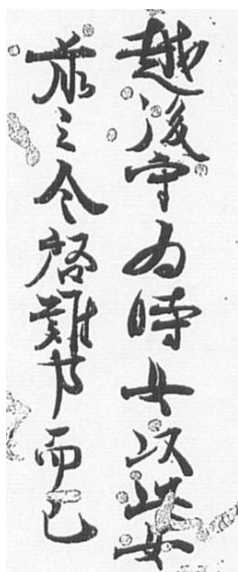 越後守為時女以此女
前々令啓雑事而已